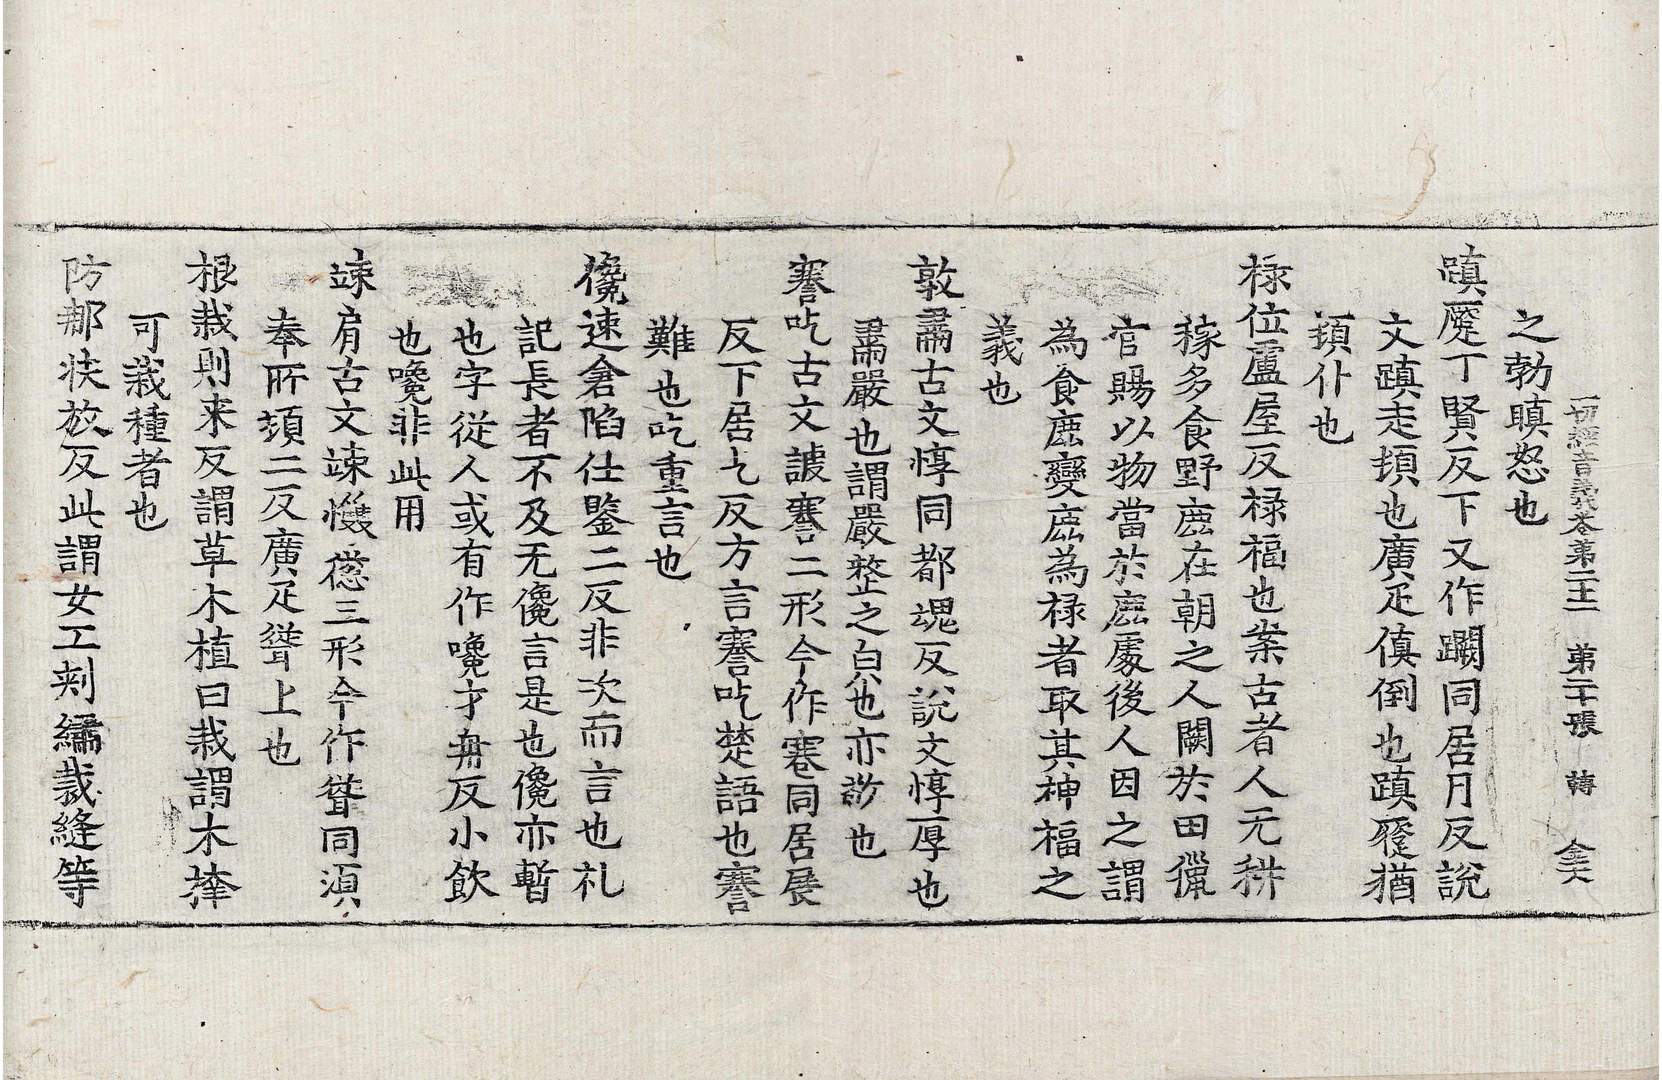 一切經音義卷第二十二 第二十張 轉
之勃瞋怒也
蹎蹷丁賢反下又作蹶同居月反說
文蹎走頓也廣疋傎倒也蹎蹷猶
頓仆也
祿位盧屋反祿福也案古者人无耕
稼多食野鹿在朝之人闕於田獵
官賜以物當於鹿處後人因之謂
為食鹿變鹿為祿者取其神福之
義也
敦肅古文惇同都魂反說文惇厚也
肅嚴也謂嚴整之皃也亦敬也
謇吃古文謇二形今作蹇同居展
反下居乞反方言謇吃楚語也謇
難也吃重言也
儳速倉陷仕鑒二反非次而言也礼
記長者不及无儳言是也儳亦暫
也字從人或有作嚵才冉反小飲
也嚵非此用
竦肩古文竦㩳慫三形今作聳同須
奉所項二反廣疋聳上也
根栽則來反謂草木植曰栽謂木
可栽種者也
防那扶放反此謂女工刺繡裁縫等